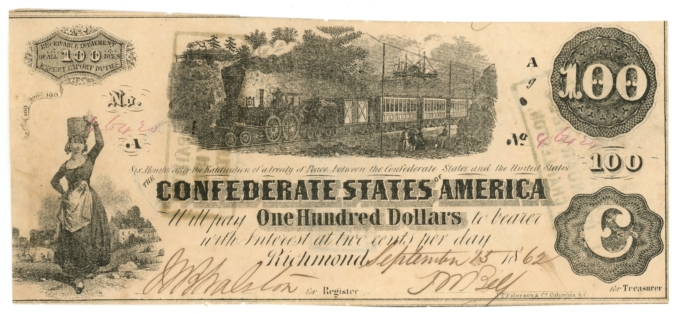 RECEIVABLE IN PAYMENT
OF ALL 100 DUES
EXCEPT EXPORT DUTIES
No.
A
A
g
100
No
100
Six Months after the Ratification of a treaty of Peace between the Confederate States and the United States
THE
CONFEDERATE STATES OF AMERICA
Will pay One Hundred Dollars to bearer
with Interest at two cents per day
Richmond September 15 1862
for Register
for Treasurer
C